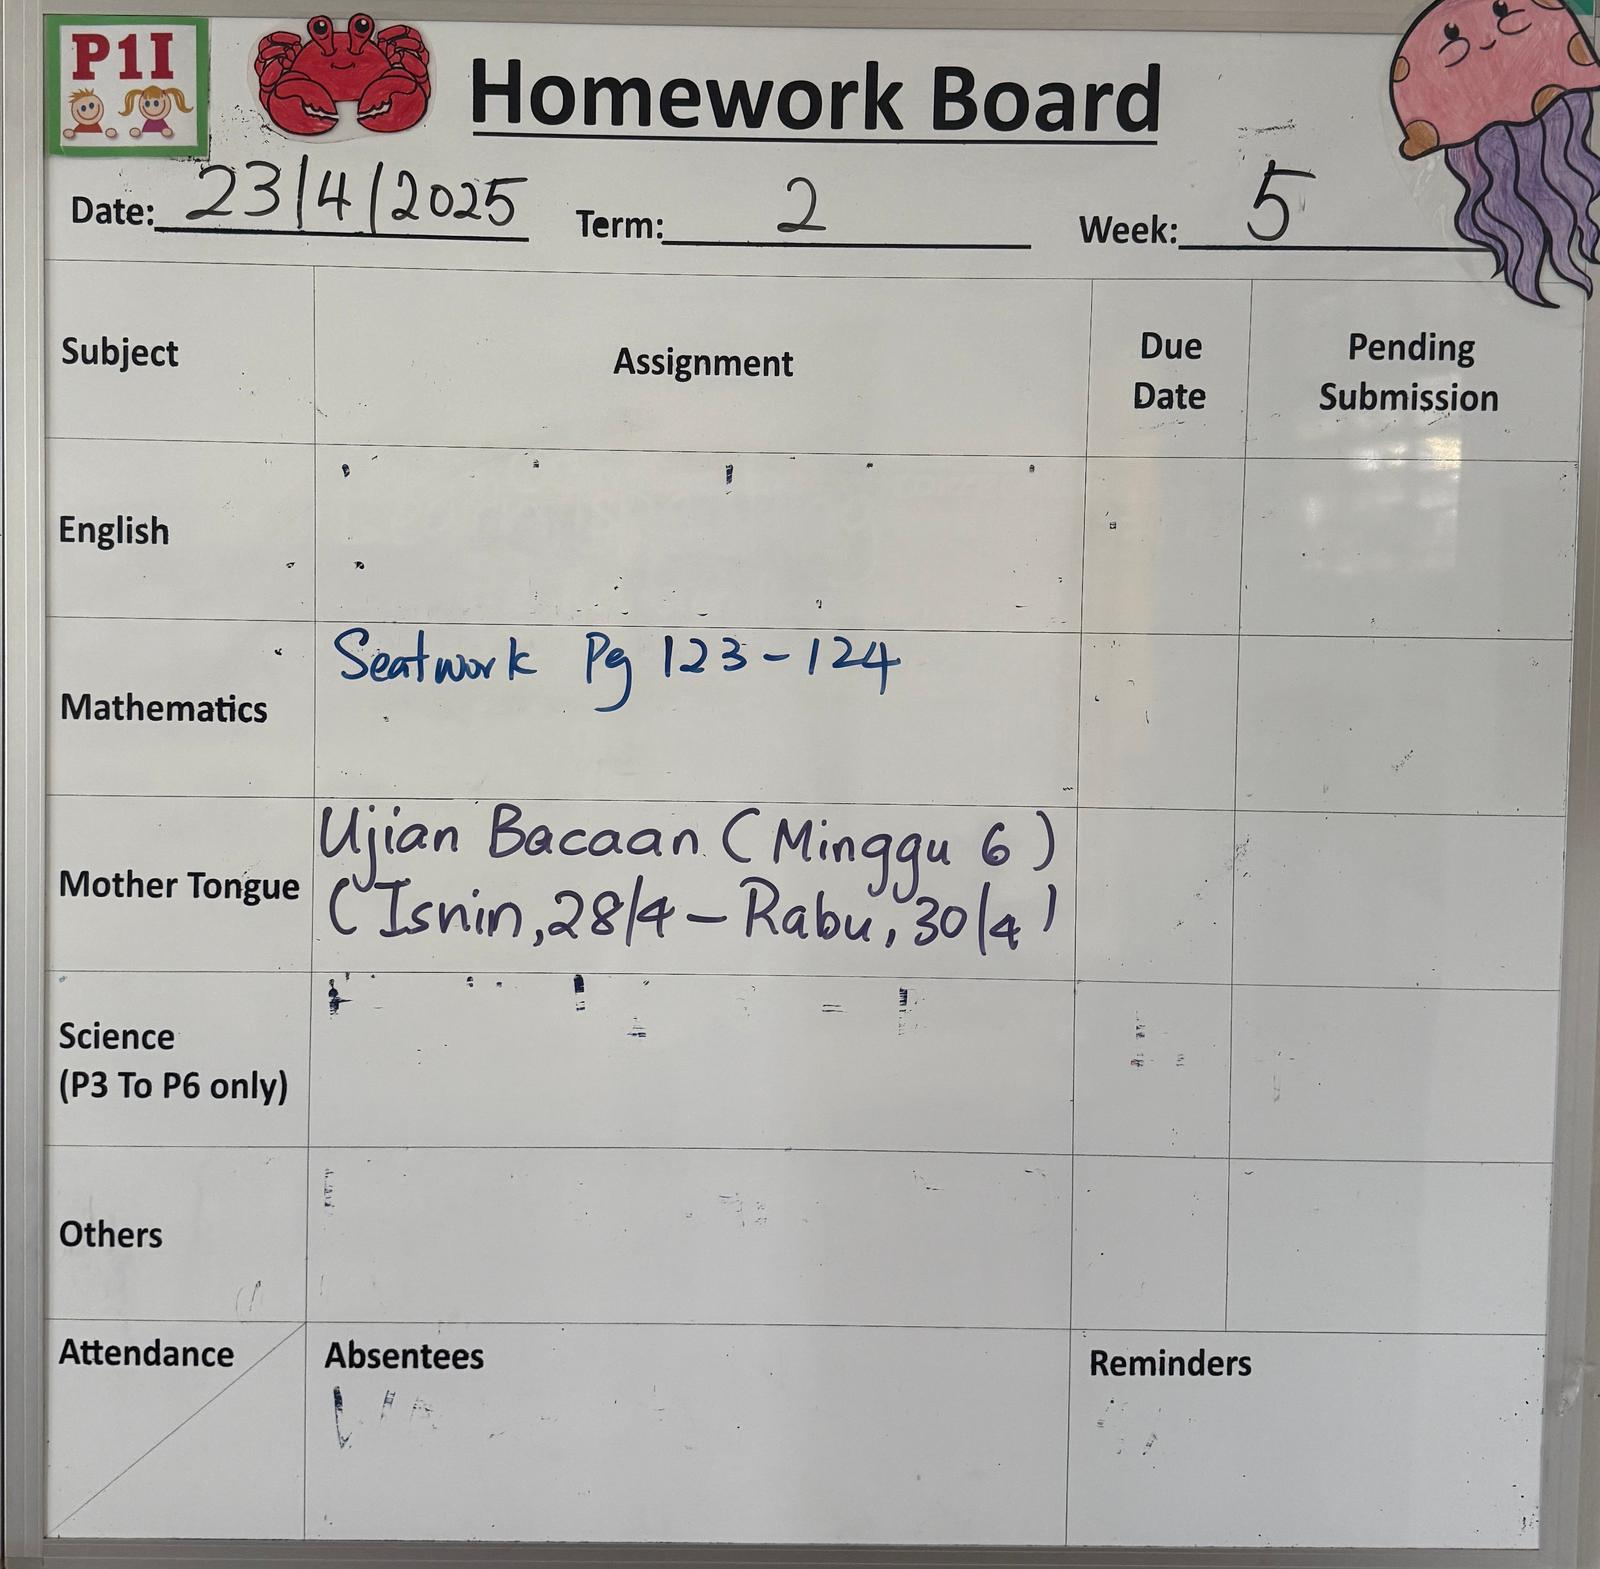 P1I
Homework Board
Date: 23/4/2025 Term: 2 Week: 5
Subject Assignment Due Date Pending Submission
English
Mathematics Seatwork Pg 123-124
Mother Tongue Ujian Bacaan (Minggu 6)
(Isnin, 28/4 – Rabu, 30/4)
Science
(P3 To P6 only)
Others
Attendance Absentees Reminders